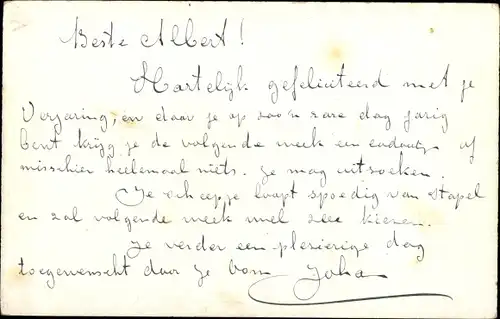 Beste Albert!
Hartelijk gefeliciteerd met je
Verjaring, en daar je op zoo'n rare dag jarig
bent krijg je de volgende week een cadeautje of
misschien heelemaal niets. Je mag uitzoeken.
Je scheepje loopt spoedig van stapel
en zal volgende week wel zee kiezen.
Je verder een plezierige dag
toegewenscht door je